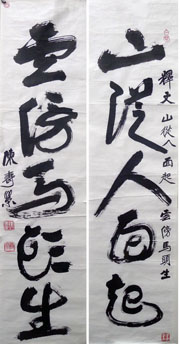 山從人面起
釋文 山從人面起 雲傍馬頭生
雲傍馬頭生